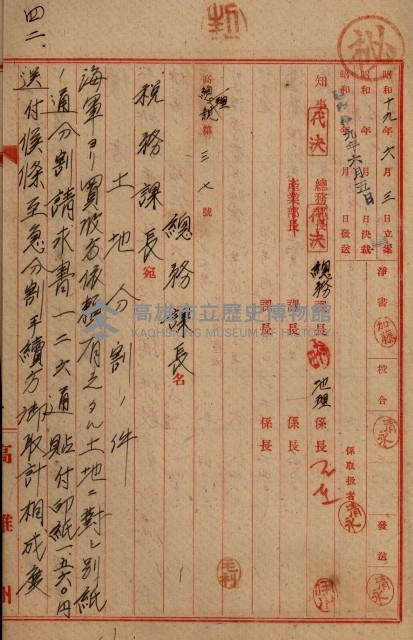 四二
秘
昭和十九年六月三日立案
昭和 年 月 日決裁
昭和 年 月 日發送
九年六月五日
淨書
加藤
校合
清永
發送
清永
係取扱者
清永
知事
代決
總務部長
代決
產業部長
總務課長
課長
課長
地理係長
係長
係長
毛利
高總 第三七號
總務課長名
稅務課長宛
土地分割ノ件
海軍ヨリ買收方依賴有之タル土地ニ對シ別紙
ノ通分割請求書一二六通貼付印紙一、五六〇円
送付候條至急分割手續方御取計相成度
高雄州
高雄市立歷史博物館
KAOHSIUNG MUSEUM OF HISTORY